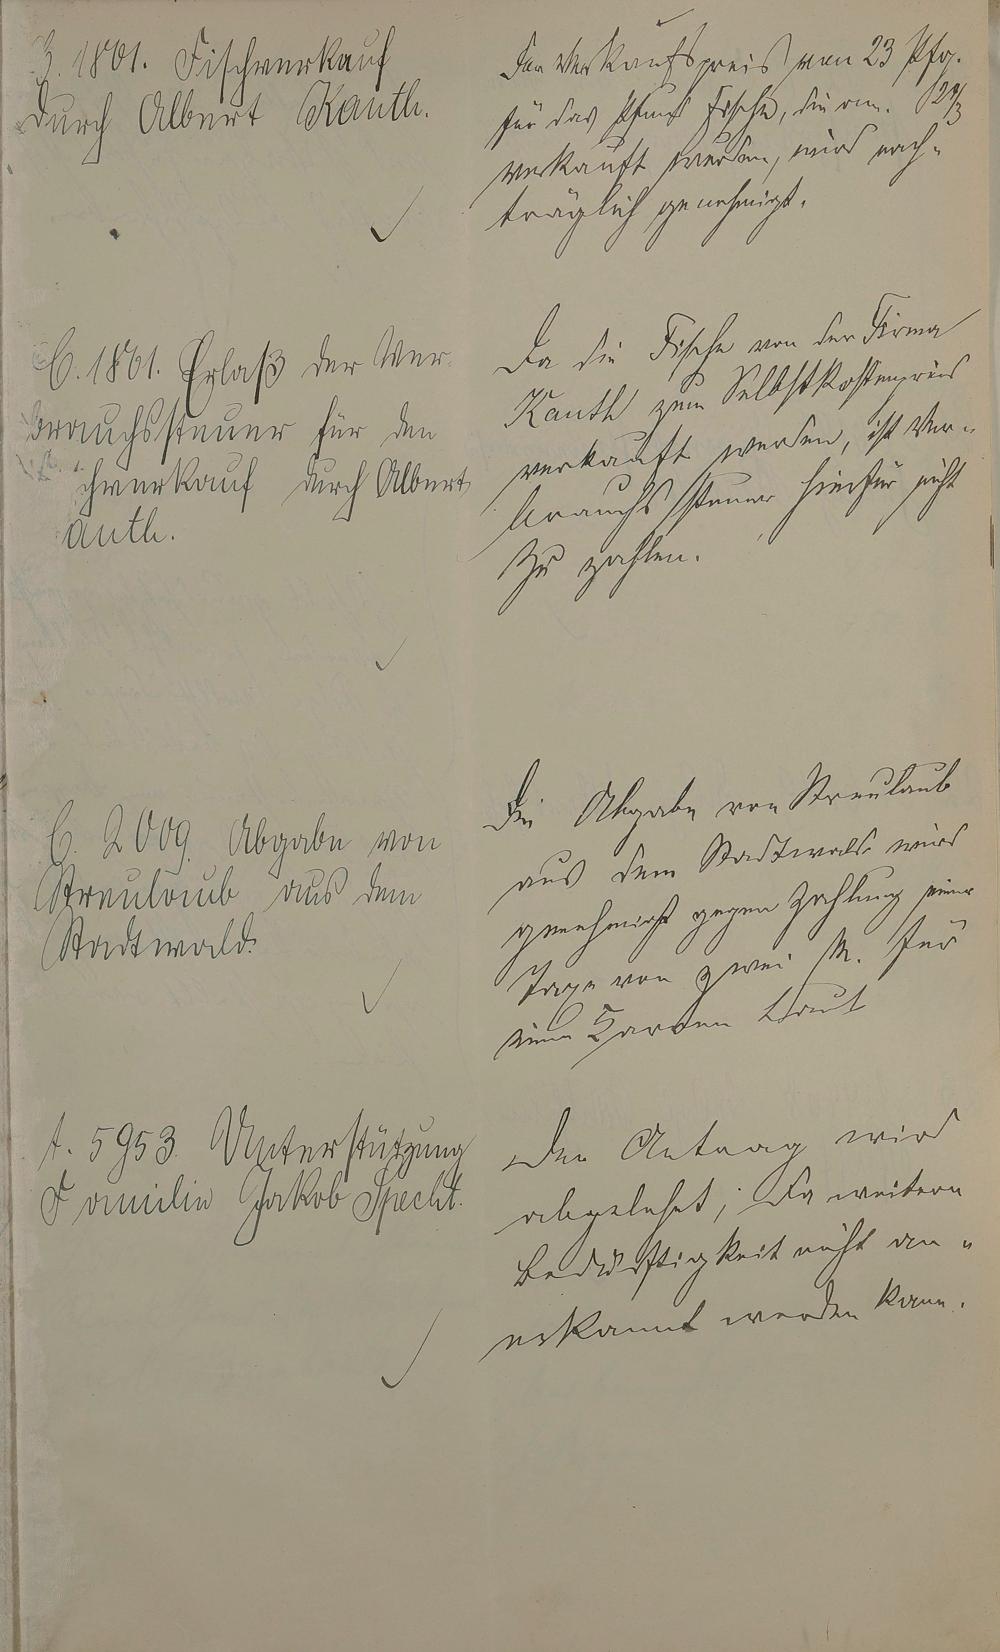 3. 1801. Fischverkauf
durch Albert Kauth.
Der Verkaufspreis von 23 Pfg.
für das Pfund Fische, die am
verkauft wurden, wird nach-
träglich genehmigt.
C. 1801. Erlaß der Ver-
brauchssteuer für den
chverkauf durch Albert
auth.
Da die Fische von der Firma
Kauth zum Selbstkostenpreis
verkauft werden, ist Ver-
brauchssteuer hierfür nicht
zu zahlen.
C. 2009. Abgabe von
Streulaub aus dem
Stadtwald.
Die Abgabe von Streulaub
aus dem Stadtwald wird
genehmigt gegen Zahlung einer
Taxe von zwei M. für
einen Karren Laub
A. 5953. Unterstützung
Familie Jakob Specht.
Der Antrag wird
abgelehnt, da weitere
Bedürftigkeit nicht an-
erkannt werden kann.